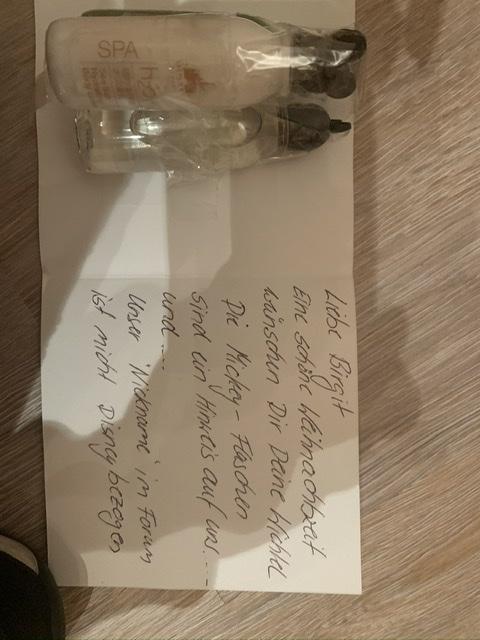 SPA
h2o
Liebe Birgit
Eine schöne Weihnachtszeit
wünschen Dir Deine Wichtel
Die Mickey-Flaschen
sind ein Hinweis auf uns....
und....
Unser Nickname im Forum
ist nicht Disneybezogen